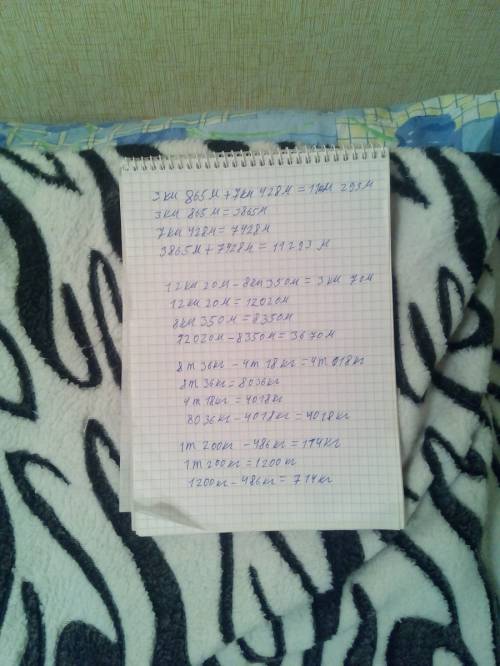 3км 865м + 7км 428м = 11км 293м
3км 865м = 3865м
7км 428м = 7428м
3865м + 7428м = 11293м
12км 20м - 8км 350м = 3км 70м
12км 20м = 12020м
8км 350м = 8350м
12020м - 8350м = 3670м
8т 36кг - 4т 18кг = 4т 018кг
8т 36кг = 8036кг
4т 18кг = 4018кг
8036кг - 4018кг = 4018кг
1т 200кг - 486кг = 114кг
1т 200кг = 1200кг
1200кг - 486кг = 714кг